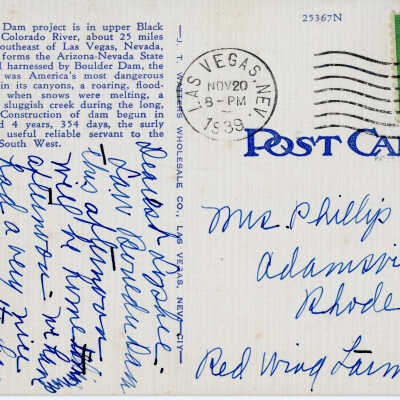 Dam project is in upper Black
Colorado River, about 25 miles
outheast of Las Vegas, Nevada,
forms the Arizona-Nevada State
l harnessed by Boulder Dam, the
was America's most dangerous
in its canyons, a roaring, flood-
when snows were melting, a
sluggish creek during the long,
Construction of dam begun in
d 4 years, 354 days, the surly
useful reliable servant to the
South West.
— J. T. WHOLESALE CO., LAS VEGAS, NEV.
25367N
LAS VEGAS, NEV.
NOV 20
8-PM
1939
POST CA
Dearest
this afternoon
will be home
afternoon - when
had a very nice
Mrs. Phillip
Adamsvi
Rhode
Red Wing Farm